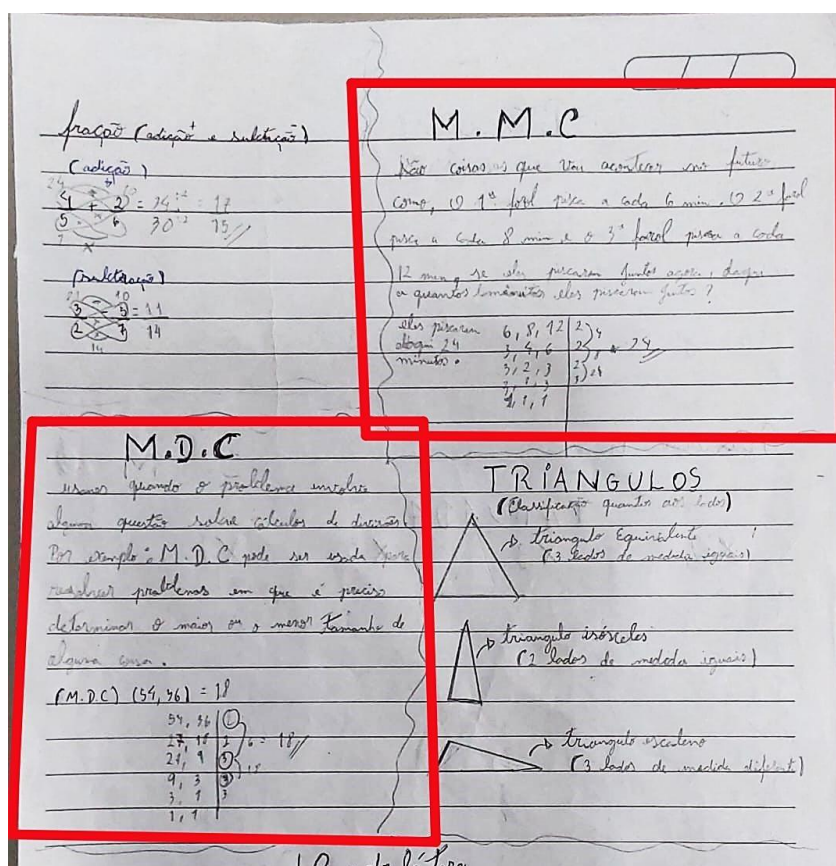 fração (adição e subtração)
(adição)
24
4 + 2 = 34 :2 = 17
5 6 30 :2 15
(subtração)
21 10
3 - 5 = 11
2 7 14
14
M.M.C
São coisas que vou acontecer no futuro
como, O 1º farol pisca a cada 6 min. O 2º farol
pisca a cada 8 min e o 3º farol a cada
12 min, se eles piscaram juntos agora, daqui
a quantos minutos eles piscaram juntos?
eles piscaram
daqui 24
minutos.
6, 8, 12 2
3, 4, 6 2 24
3, 2, 3 2
3, 1, 3 3
1, 1, 1
M.D.C
usamos quando o problema envolve
alguma questão sobre cálculos de divisões
Por exemplo: M.D.C pode ser usada para
resolver problemas em que é preciso
determinar o maior ou o menor tamanho de
alguma coisa.
(M.D.C) (54, 36) = 18
54, 36
27, 18 6 = 18
9, 3
3, 1 3
1, 1
TRIANGULOS
(Classificação quantos aos lados)
triangulo Equivalente
(3 lados de medida iguais)
triangulo isósceles
(2 lados de medida iguais)
triangulo escaleno
(3 lados de medida diferente)